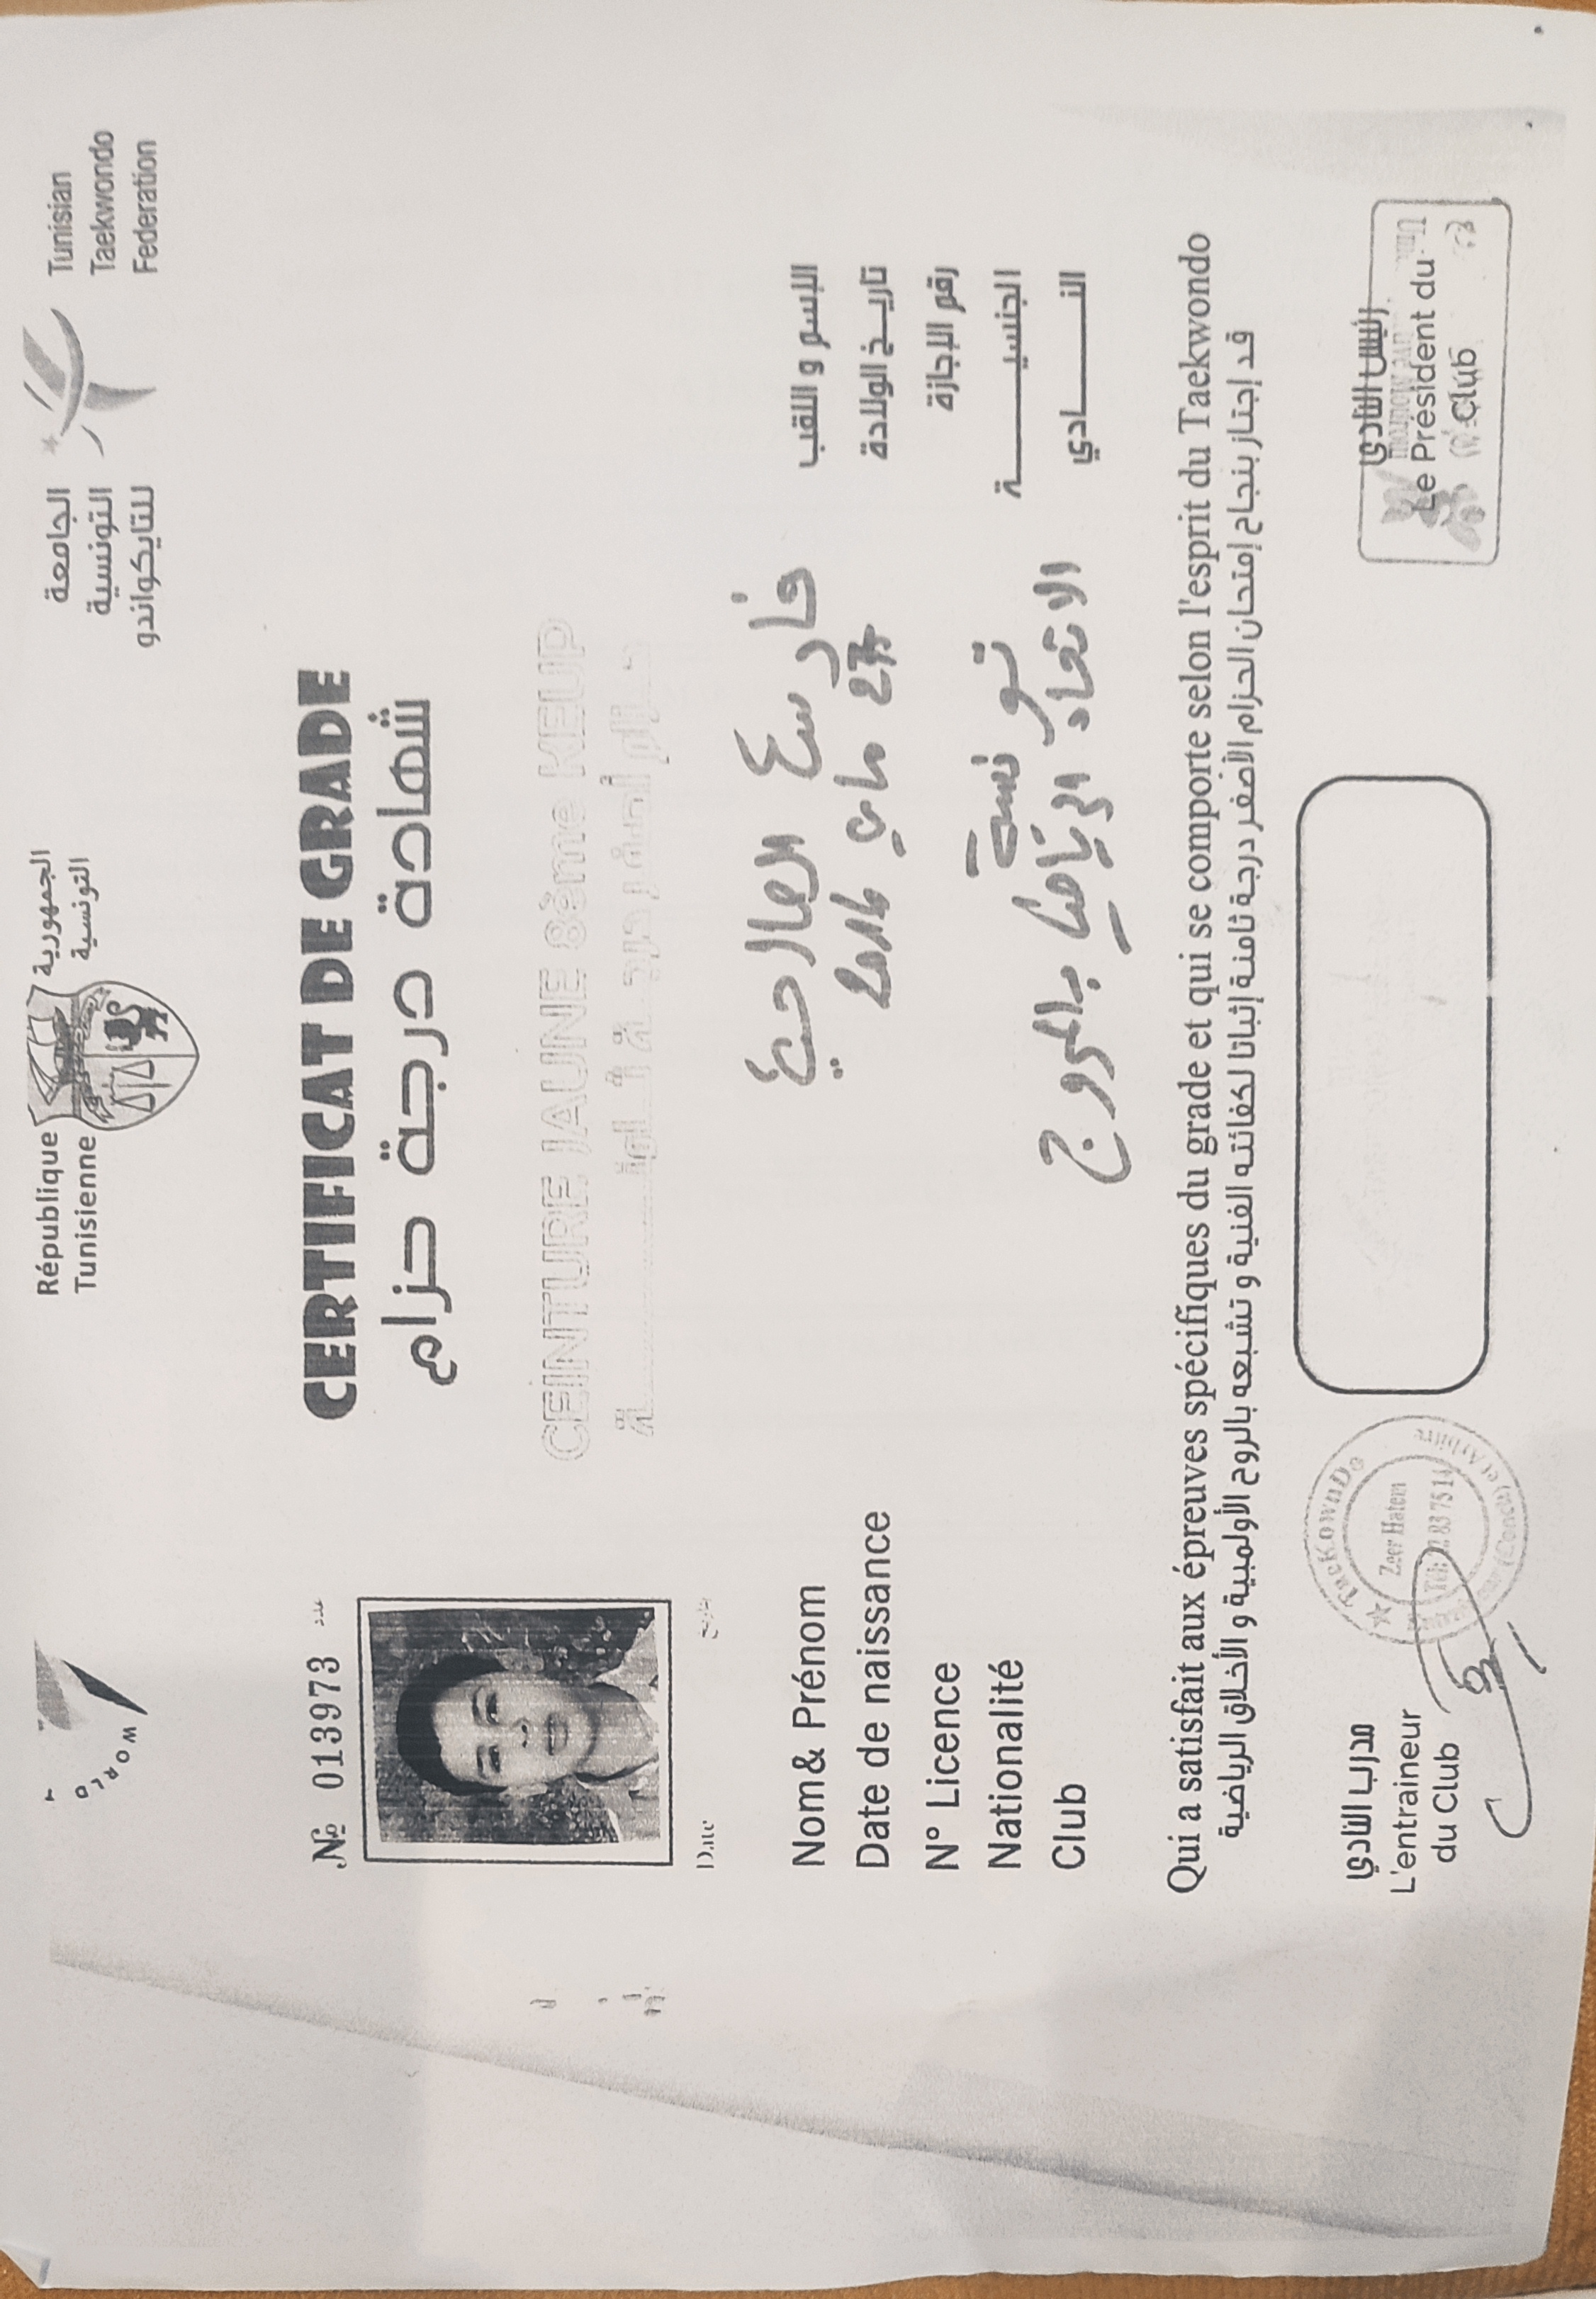 WORLD
République
Tunisienne
الجمهورية
التونسية
الجامعة
التونسية
للتايكواندو
Tunisian
Taekwondo
Federation
№ 013973 عدد
CERTIFICAT DE GRADE
شهادة درجة حزام
CEINTURE JAUNE 8ème KEUP
حزام أصفر درجة ثامنة
Date تاريخ
Nom& Prénom الإسم و اللقب
Date de naissance 27 ماي تاريخ الولادة
N° Licence رقم الإجازة
Nationalité تونسية الجنسية
Club الاتحاد الرياضي بالمروج النادي
Qui a satisfait aux épreuves spécifiques du grade et qui se comporte selon l'esprit du Taekwondo
قد إجتاز بنجاح إمتحان الحزام الأصفر درجة ثامنة إثباتا لكفائته الفنية و تشبعه بالروح الأولمبية و الأخلاق الرياضية
مدرب النادي
L'entraineur
du Club
TaeKownDo
Zeer Hatem
Tél: 83 75 14
et Arbitre
رئيس النادي
Le Président du
Club